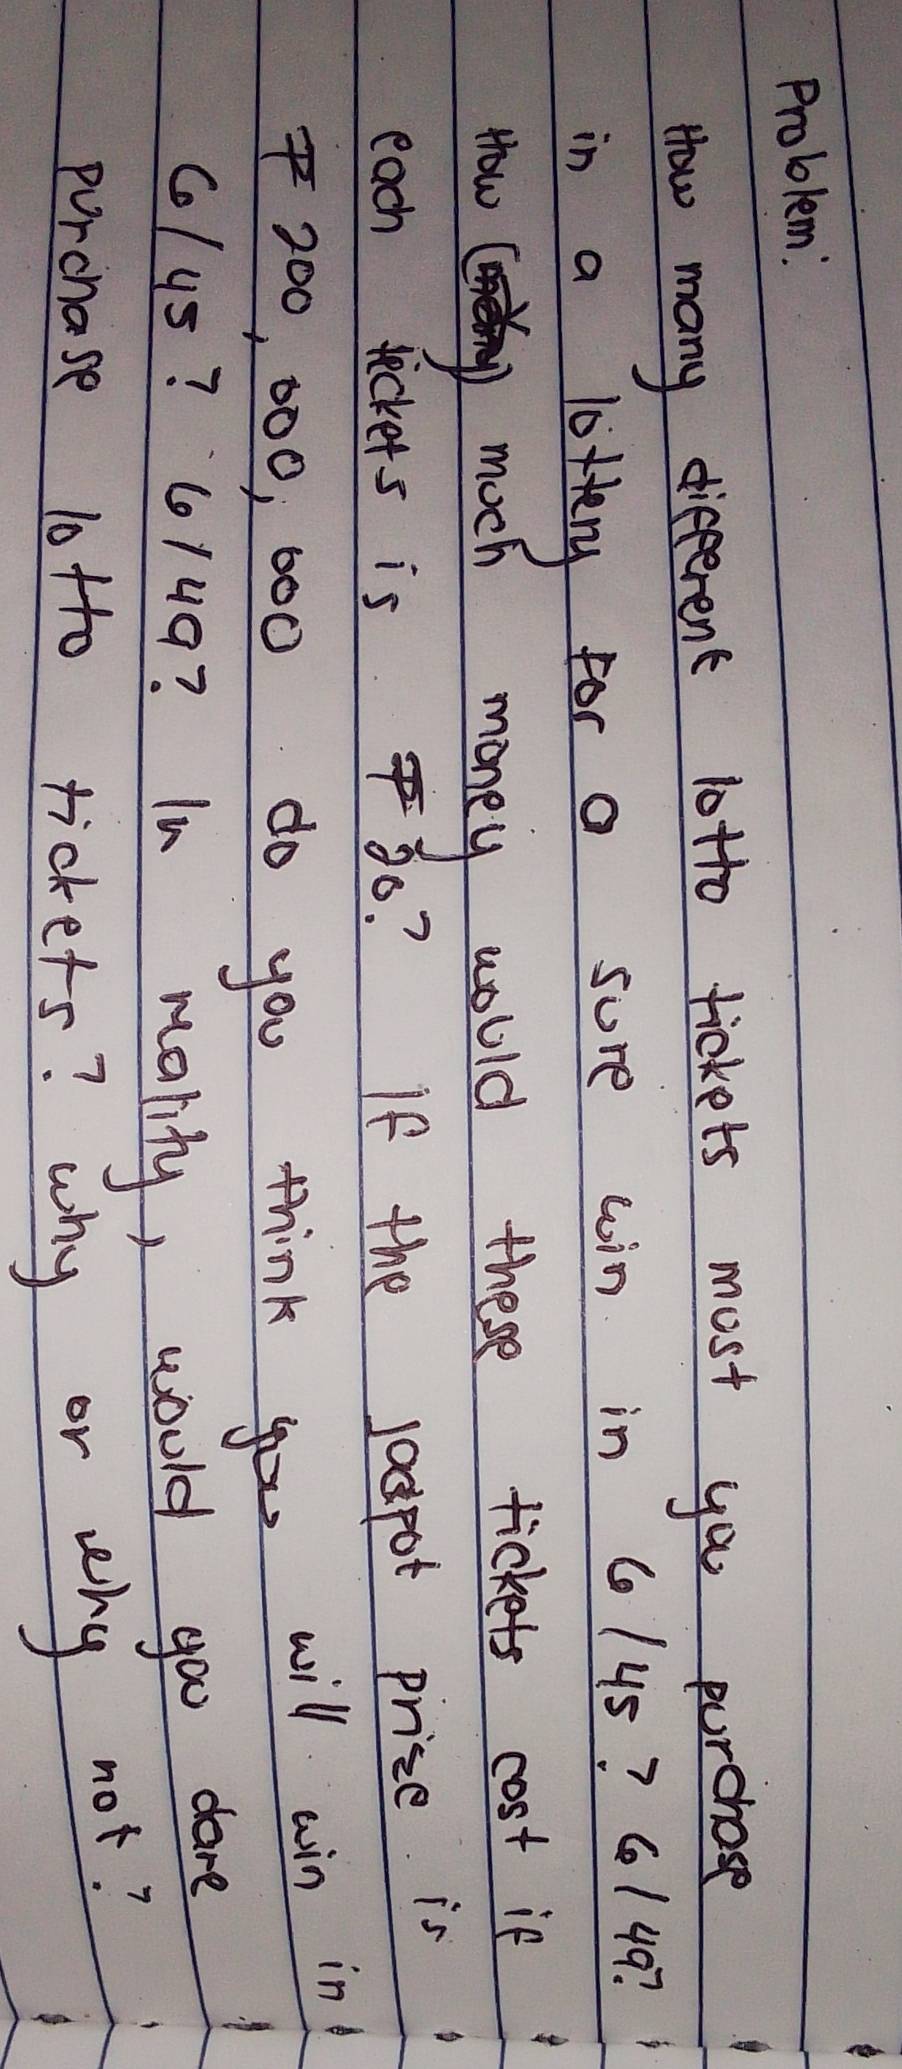 Problem:
How many different lotto tickets must you purchase
in a lottery for a sure win in 6/45? 6/49?
How much money would these tickets cost if
each tickets is ₱20? If the jacpot prize is
₱200,000,000 do you think you will win in
6/45? 6/49? In reality, would you dare
purchase lotto tickets? why or why not?